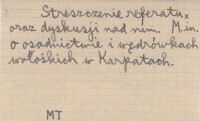 Streszczenie referatu,
oraz dyskusji nad nim. M.in.
o osadnictwie i wędrówkach
wołoskich w Karpatach.
MT